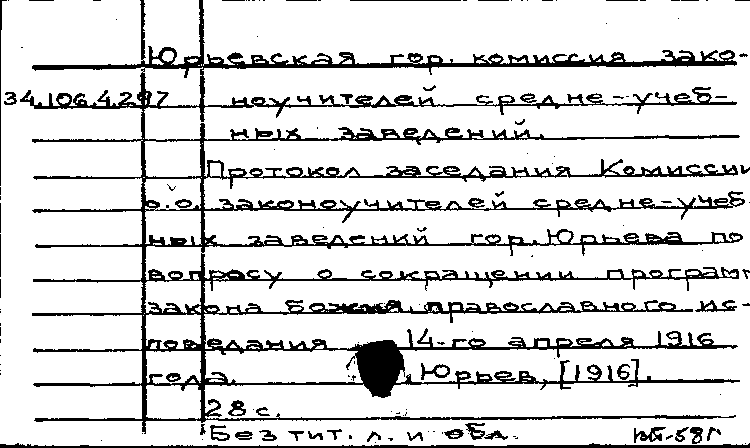 Юрьевская гор. комиссия зако-
34.106.4297 ноучителей средне-учеб-
ных заведений.
Протокол заседания Комиссии
о.о. законоучителей средне-учеб-
ных заведений гор. Юрьева по
вопросу о сокращении программ
закона божия православного ис-
поведания 14-го апреля 1916
года. , Юрьев, [1916].
28 с.
Без тит. л. и обл.